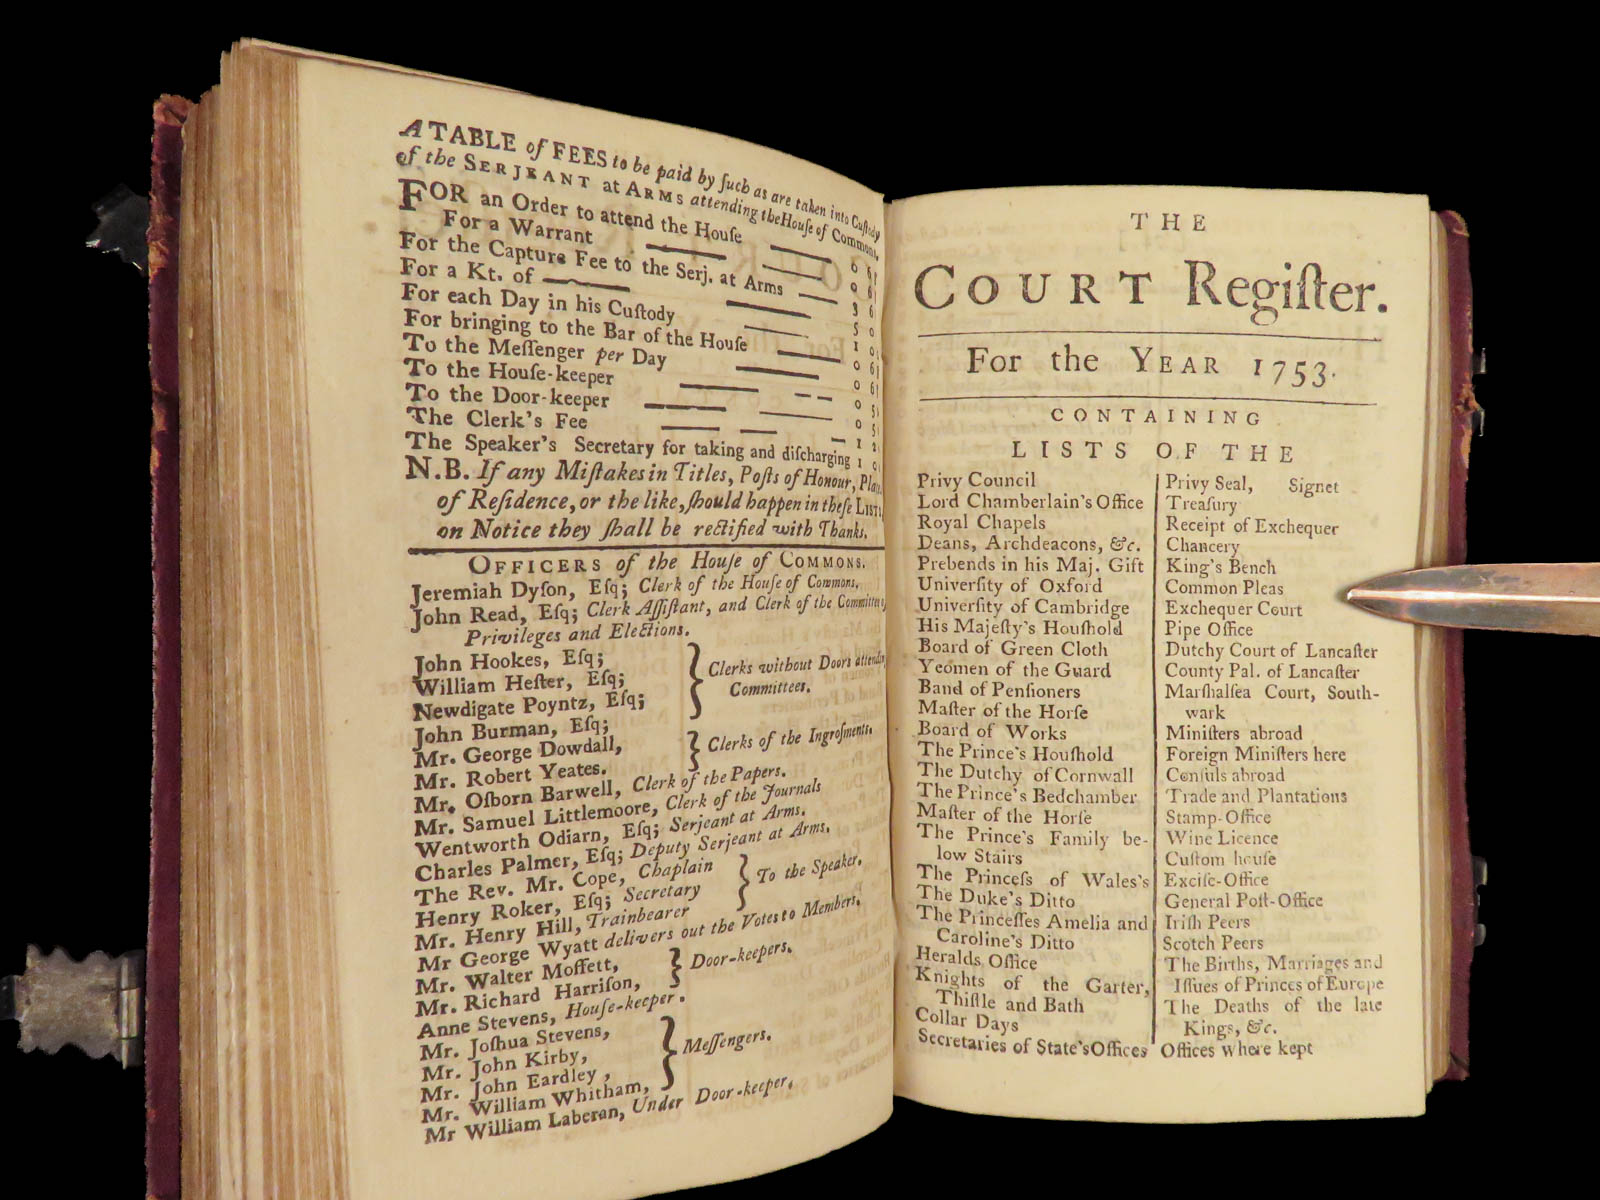 A TABLE of FEES to be paid by ſuch as are taken into Cuſtody
of the SERJEANT at ARMS attending the Houſe of Commons.
FOR an Order to attend the Houſe — 0 6
For a Warrant — — 0 6
For the Capture Fee to the Serj. at Arms — 3 6
For a Kt. of — — 5 0
For each Day in his Cuſtody — 1 0
For bringing to the Bar of the Houſe — 0 6
To the Meſſenger per Day — 0 6
To the Houſe-keeper — — 0 5
To the Door-keeper — — 0 5
The Clerk's Fee — — — 1 2
The Speaker's Secretary for taking and diſcharging 1 0
N.B. If any Miſtakes in Titles, Poſts of Honour,
of Reſidence, or the like, ſhould happen in theſe LISTS
on Notice they ſhall be rectified with Thanks.
OFFICERS of the Houſe of COMMONS.
Jeremiah Dyſon, Eſq; Clerk of the Houſe of Commons.
John Read, Eſq; Clerk Aſſiſtant, and Clerk of the Committees
Privileges and Elections.
John Hookes, Eſq;
William Heſter, Eſq;
Newdigate Poyntz, Eſq;
Clerks without Doors attending
Committees.
John Burman, Eſq;
Mr. George Dowdall,
Mr. Robert Yeates.
Clerks of the Ingroſments.
Mr. Oſborn Barwell, Clerk of the Papers.
Mr. Samuel Littlemoore, Clerk of the Journals
Wentworth Odiarn, Eſq; Serjeant at Arms.
Charles Palmer, Eſq; Deputy Serjeant at Arms.
The Rev. Mr. Cope, Chaplain
Henry Roker, Eſq; Secretary
Mr. Henry Hill, Trainbearer
To the Speaker.
Mr George Wyatt delivers out the Votes to Members.
Mr. Walter Moffett,
Mr. Richard Harriſon,
Door-keepers.
Anne Stevens, Houſe-keeper.
Mr. Joſhua Stevens,
Mr. John Kirby,
Mr. John Eardley,
Mr. William Whitham,
Meſſengers.
Mr William Laberan, Under Door-keeper.
THE
COURT Regiſter.
For the YEAR 1753.
CONTAINING
LISTS OF THE
Privy Council
Lord Chamberlain's Office
Royal Chapels
Deans, Archdeacons, &c.
Prebends in his Maj. Gift
Univerſity of Oxford
Univerſity of Cambridge
His Majeſty's Houſhold
Board of Green Cloth
Yeomen of the Guard
Band of Penſioners
Maſter of the Horſe
Board of Works
The Prince's Houſhold
The Dutchy of Cornwall
The Prince's Bedchamber
Maſter of the Horſe
The Prince's Family be-
low Stairs
The Princeſs of Wales's
The Duke's Ditto
The Princeſſes Amelia and
Caroline's Ditto
Heralds Office
Knights of the Garter,
Thiſtle and Bath
Collar Days
Secretaries of State's Offices
Privy Seal, Signet
Treaſury
Receipt of Exchequer
Chancery
King's Bench
Common Pleas
Exchequer Court
Pipe Office
Dutchy Court of Lancaſter
County Pal. of Lancaſter
Marſhalſea Court, South-
wark
Miniſters abroad
Foreign Miniſters here
Conſuls abroad
Trade and Plantations
Stamp-Office
Wine Licence
Cuſtom houſe
Exciſe-Office
General Poſt-Office
Iriſh Peers
Scotch Peers
The Births, Marriages and
Iſſues of Princes of Europe
The Deaths of the late
Kings, &c.
Offices where kept